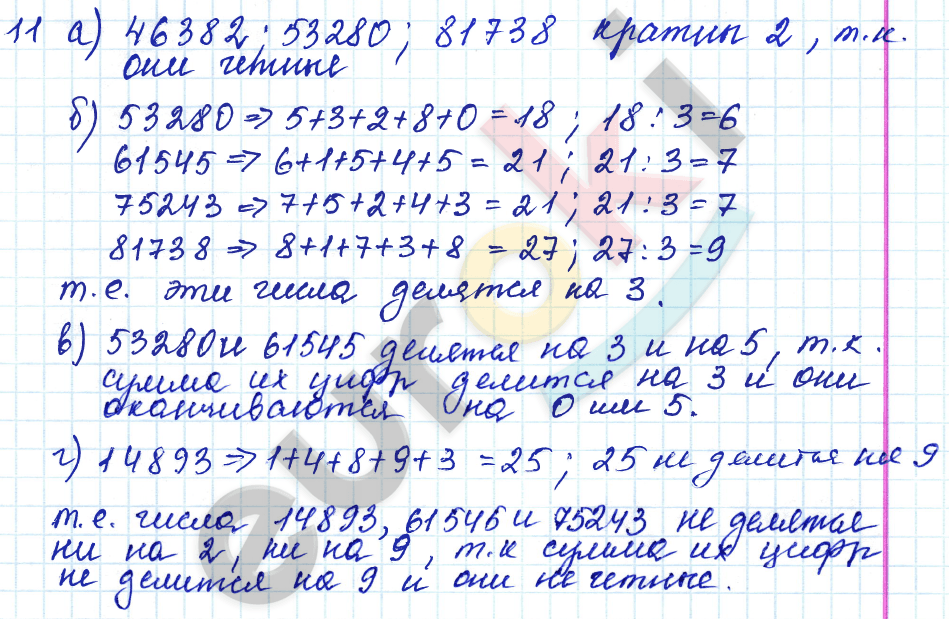 11 а) 46382; 53280; 81738 кратны 2, т.к.
они четные
б) 53280 => 5+3+2+8+0 = 18; 18:3=6
61545 => 6+1+5+4+5 = 21; 21:3=7
75243 => 7+5+2+4+3 = 21; 21:3=7
81738 => 8+1+7+3+8 = 27; 27:3=9
т.е. эти числа делятся на 3.
в) 53280 и 61545 делятся на 3 и на 5, т.к.
сумма их цифр делится на 3 и они
оканчиваются на 0 или 5.
г) 14893 => 1+4+8+9+3 = 25; 25 не делится на 9
т.е. числа 14893, 61546 и 75243 не делятся
ни на 2, ни на 9, т.к сумма их цифр
не делится на 9 и они не четные.
euroki